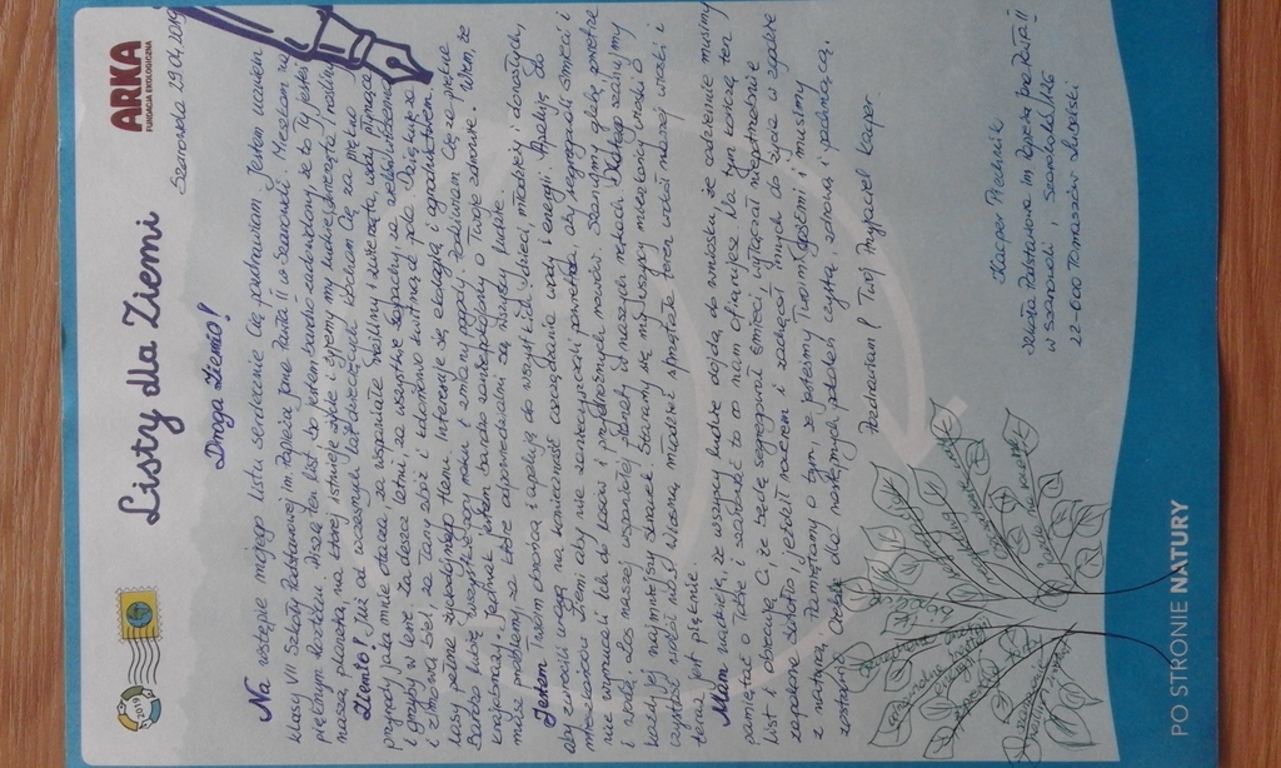 2019
Listy dla Ziemi
ARKA
FUNDACJA EKOLOGICZNA
29.04.2019
Droga Ziemio!
Na wstępie mojego listu serdecznie Cię pozdrawiam. Jestem uczniem
klasy VII Szkoły Podstawowej im. Papieża Jana Pawła II w Szarowoli. Mieszkam na
pięknym Roztoczu. Piszę ten list, bo jestem bardzo zadowolony, że to Ty jesteś
nasza planeta, na której istnieje życie i żyjemy my ludzie, zwierzęta i rośliny
Ziemio! Już od wczesnych lat dziecięcych kocham Cię za piękno
przyrody jaka mnie otacza, za wspaniałe rośliny i zwierzęta, wody płynące
i grzyby w lesie. Za deszcz letni, za wszystkie zapachy, za
i zimową biel, za łany zbóż i kolorowo kwitnące pola. Dziękuję za
lasy pełne życiodajnego tlenu. Interesuję się ekologią i agroturystyką.
Bardzo lubię wszystkie pory roku i zmiany pogody. Podziwiam Cię za piękne
krajobrazy. Jednak jestem bardzo zaniepokojony o Twoje zdrowie. Wiem, że
masz problemy, za które odpowiedzialni są wszyscy ludzie.
Jestem Twoim obrońcą i apeluję do wszystkich dzieci, młodzieży i dorosłych,
aby zwrócili uwagę na konieczność oszczędzania wody i energii. Apeluję do
mieszkańców Ziemi aby nie zanieczyszczali powietrza, aby segregowali śmieci i
nie wyrzucali ich do lasów i przydrożnych rowów. Szanujmy glebę, powietrze
i wodę. Los naszej wspaniałej planety w naszych rękach. Dlatego szanujmy
każdy najmniejszy skrawek. Starajmy się my wszyscy mieszkańcy wioski o
czystość wokół nas. Wiosną młodzież sprząta teren wokół naszej wioski i
teraz jest pięknie.
Mam nadzieję, że wszyscy ludzie dojdą do wniosku, że codziennie musimy
pamiętać o Tobie i szanować to co nam ofiarujesz. Na tym kończę ten
list i obiecuję Ci, że będę segregował śmieci, wyłączał niepotrzebnie
zapalone światło, jeździł rowerem i zachęcał innych do życia w zgodzie
z naturą. Pamiętamy o tym, że jesteśmy Twoimi gośćmi i musimy
zostawić Ciebie dla następnych pokoleń czystą, zdrową i pachnącą.
Pozdrawiam! Twój Przyjaciel Kacper.
Kacper Piechnik
Szkoła Podstawowa im Papieża Jana Pawła II
w Szarowoli, Szarowola 126
22-600 Tomaszów Lubelski
PO STRONIE NATURY